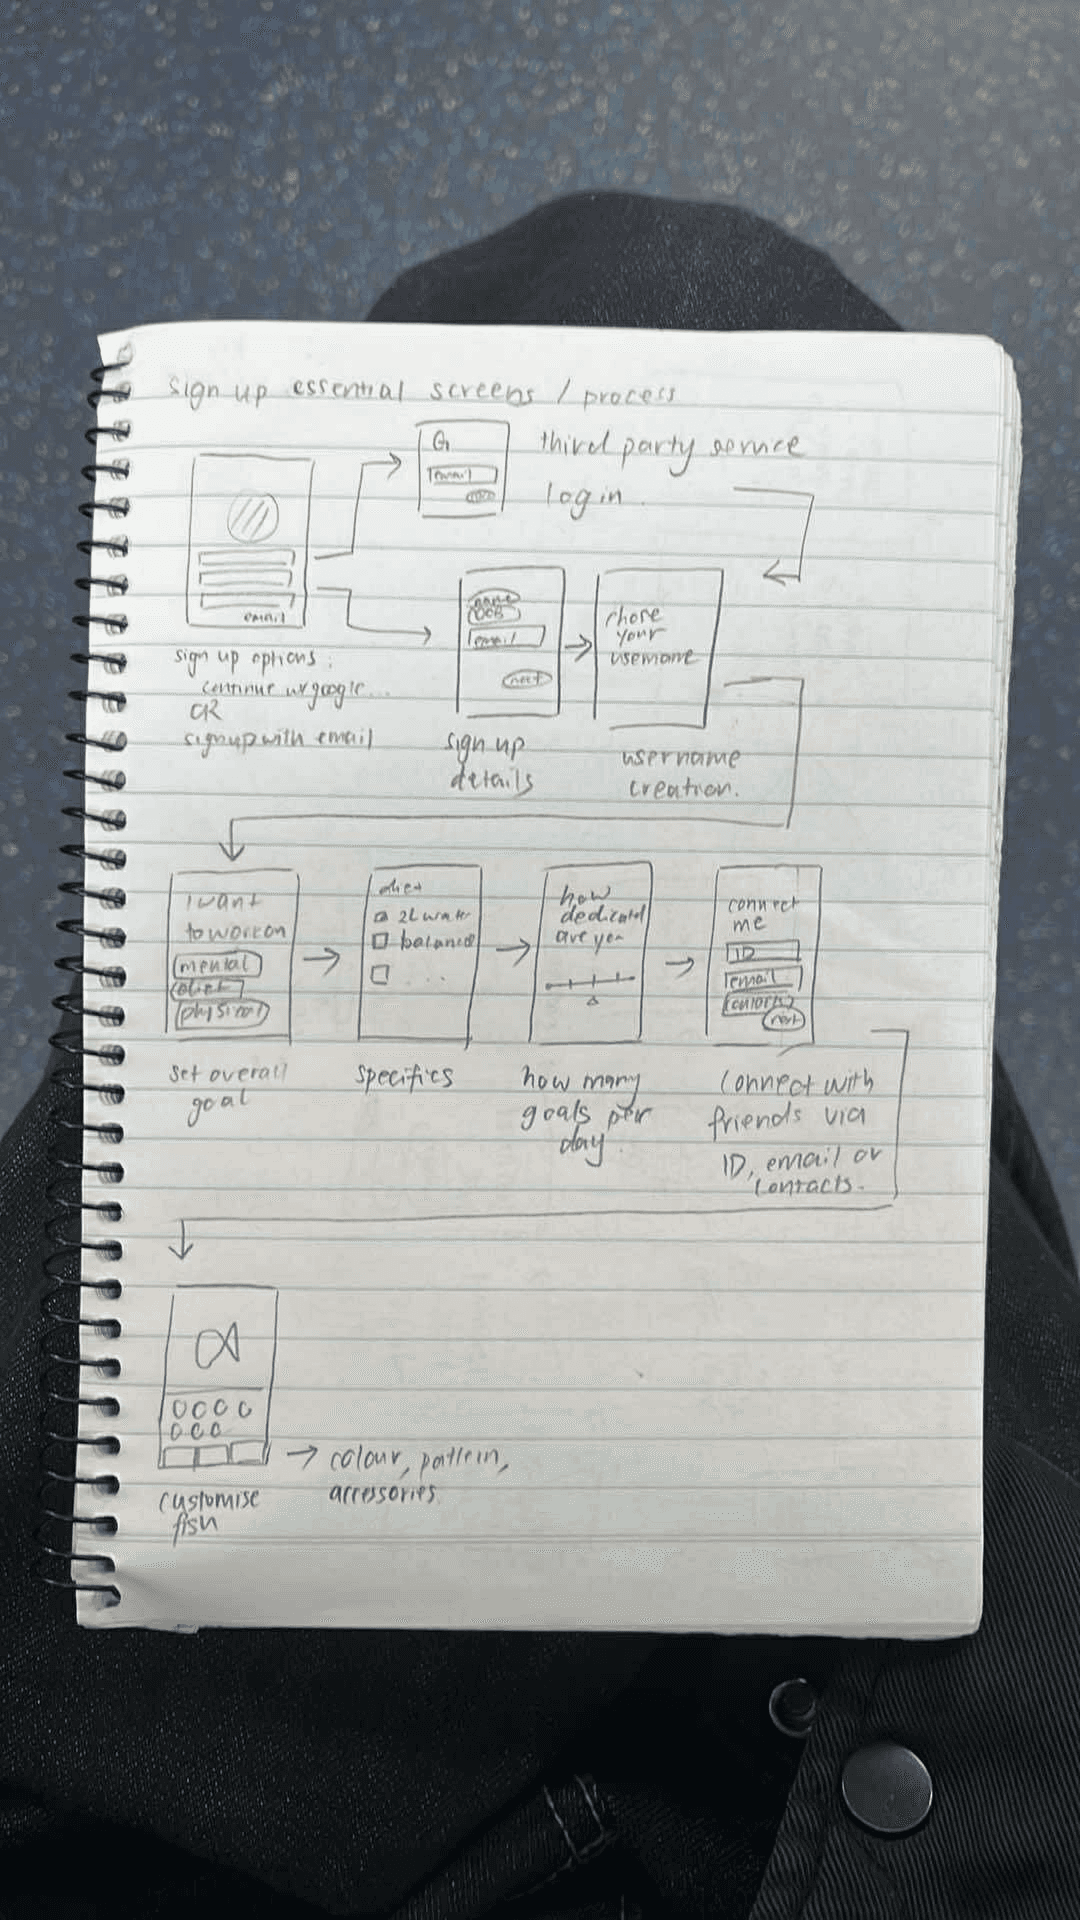 sign up essential screens / process
G
email
third party service
login.
email
sign up options:
continue w/ google...
OR
signup with email
name
DOB
email
next
sign up
details
chose
your
username
username
creation.
I want
to work on
mental
diet
physical
set overall
goal
diet
2L water
balanced
...
specifics
how
dedicated
are you
how many
goals per
day.
connect
me
ID
email
contacts
next
connect with
friends via
ID, email or
contacts.
customise
fish
colour, pattern,
accessories